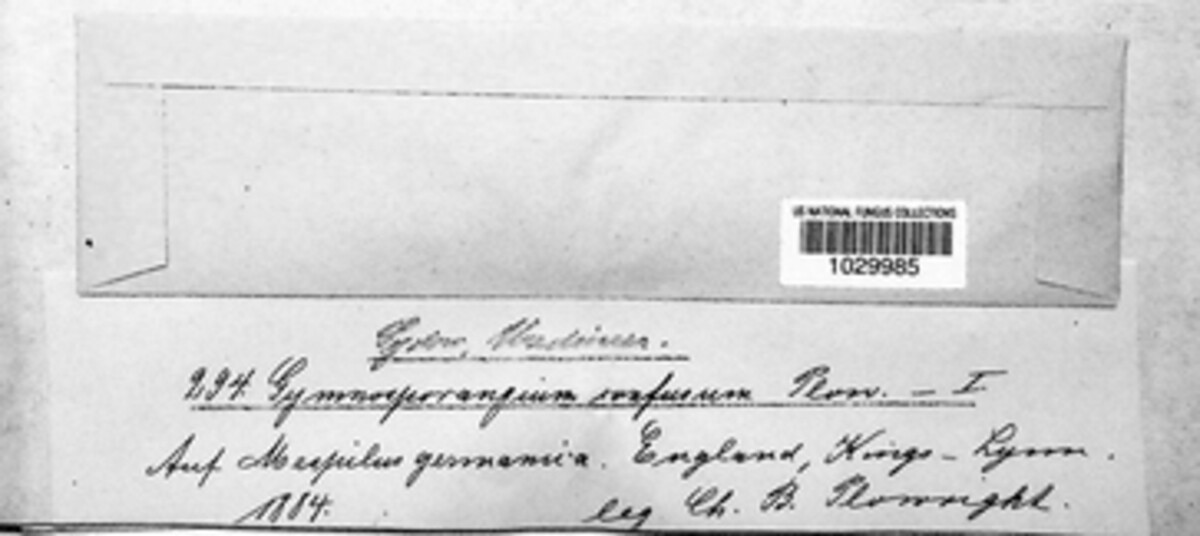 US NATIONAL FUNGUS COLLECTIONS
1029985
Sydow, Uredineen.
294. Gymnosporangium confusum Plow. – I.
Auf Mespilus germanica. England, Kings-Lynn.
1884. leg Ch. B. Plowright.